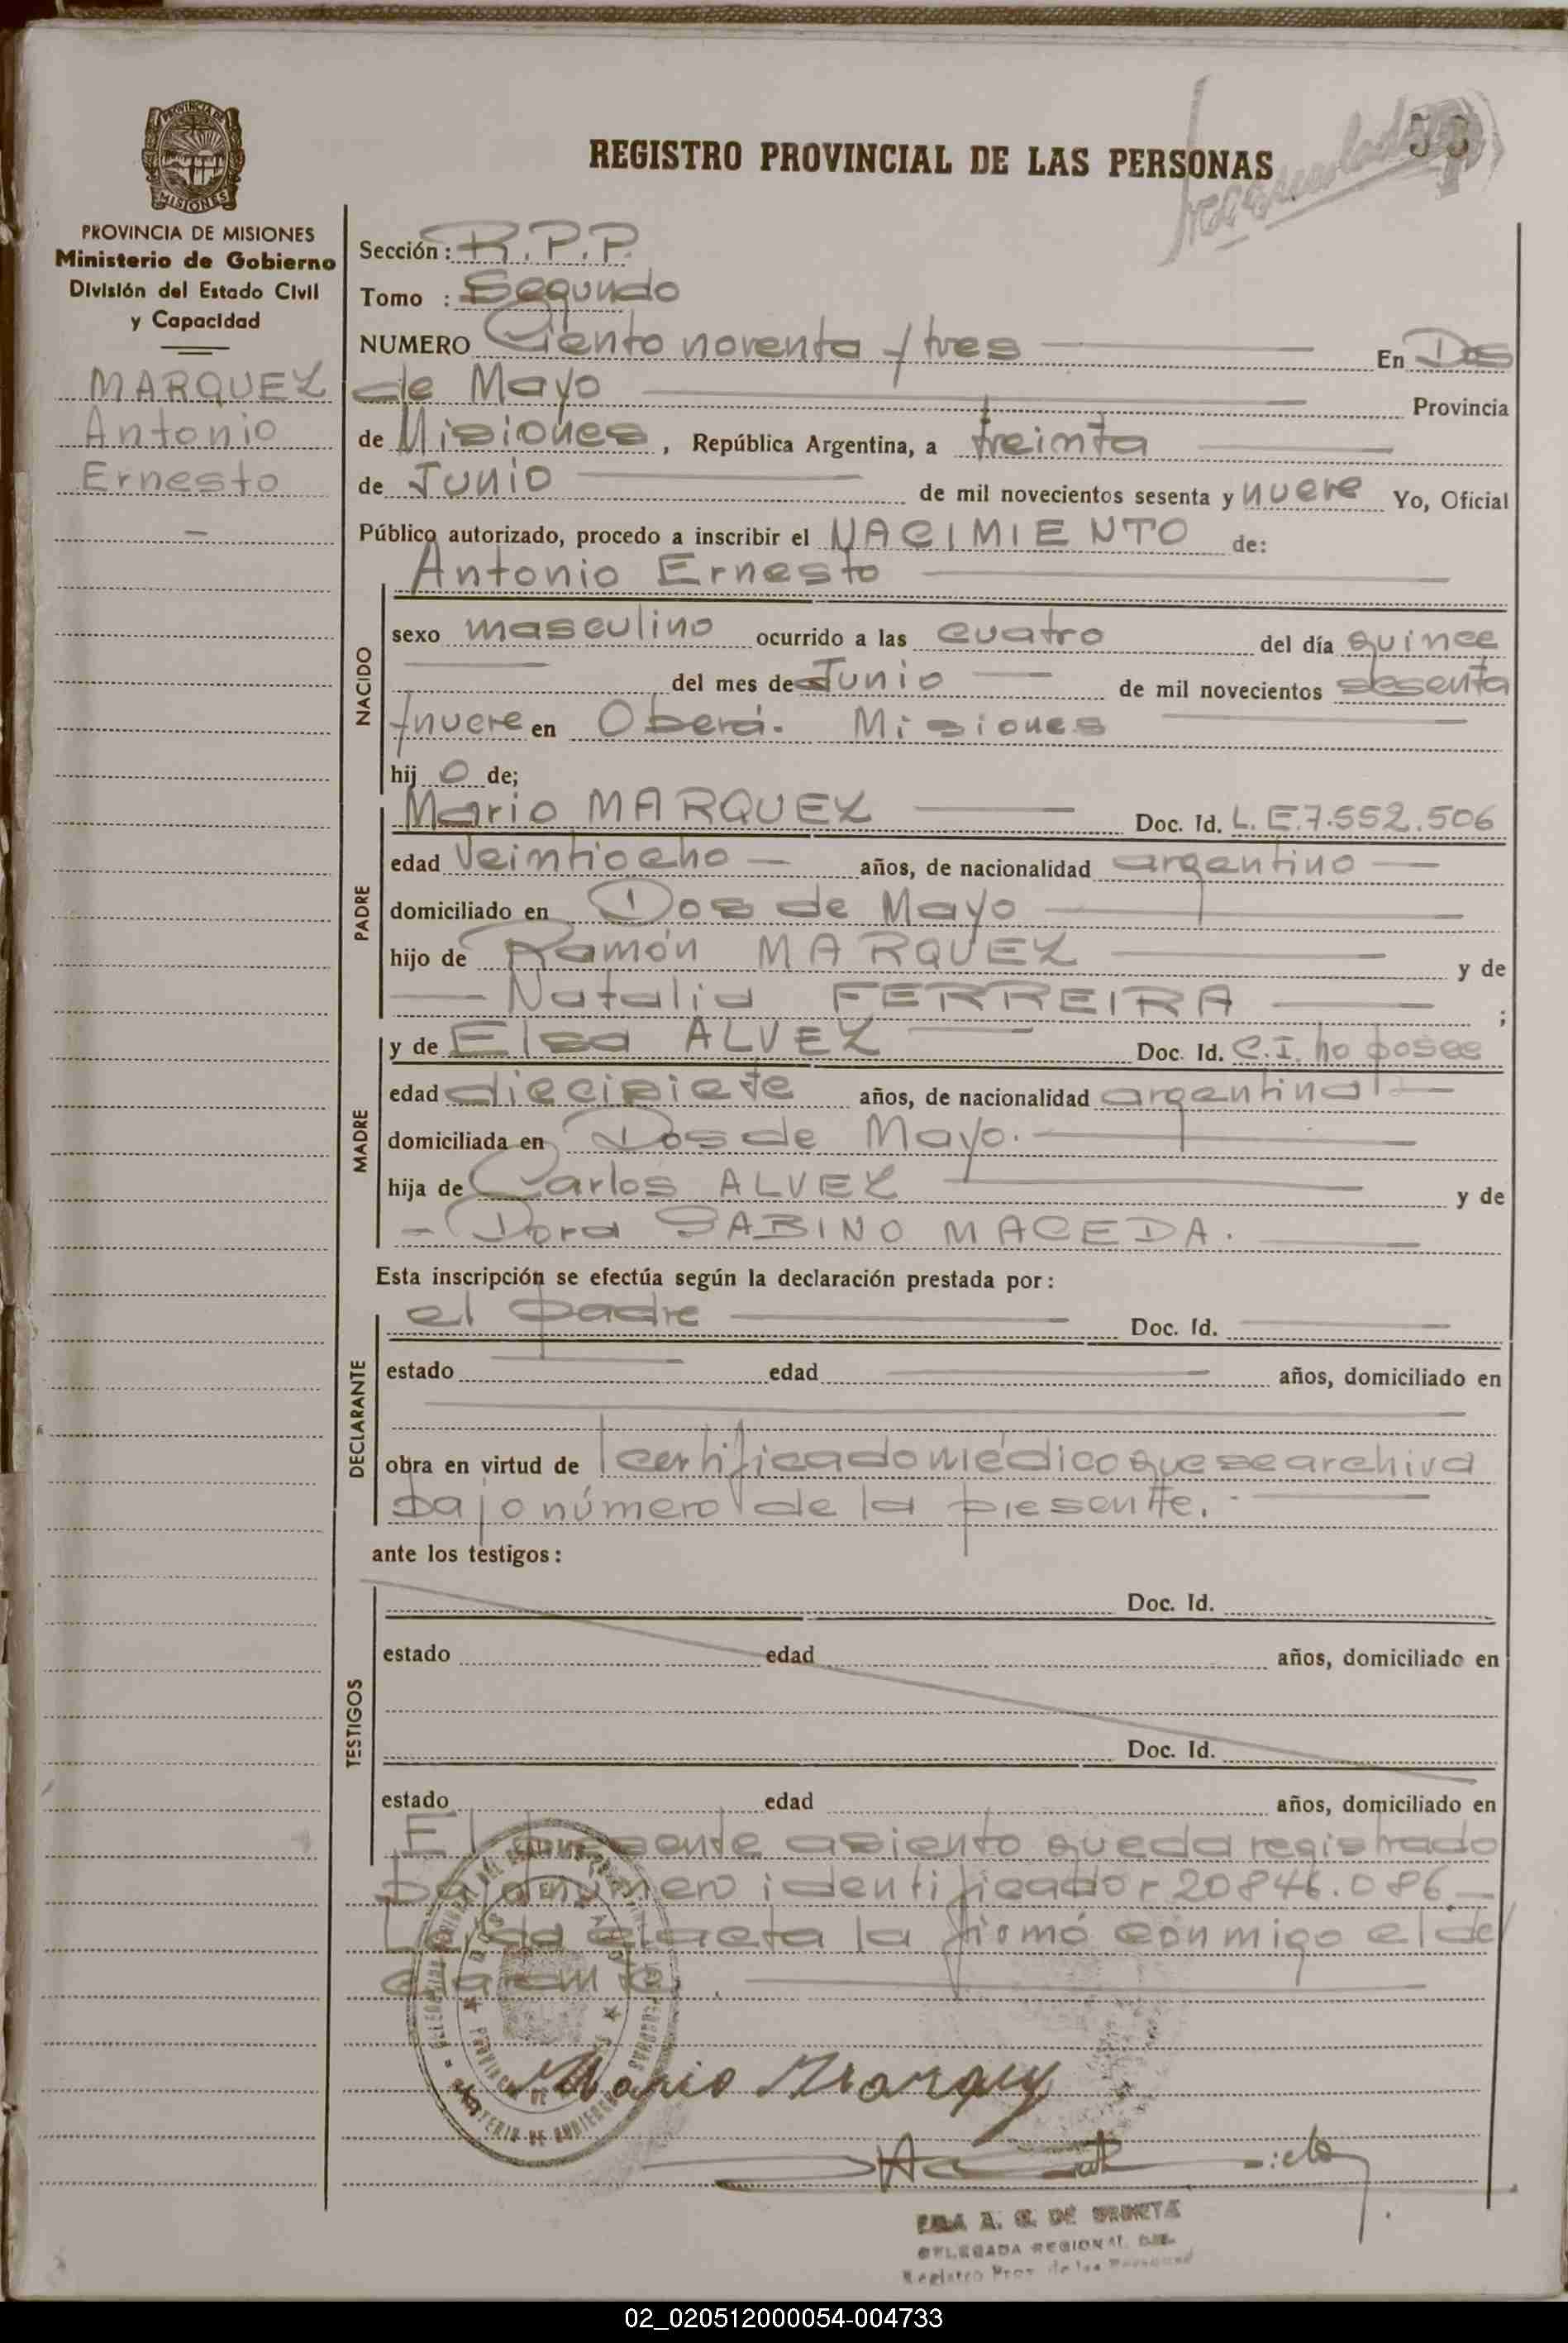 REGISTRO PROVINCIAL DE LAS PERSONAS
53
PROVINCIA DE
MISIONES
PROVINCIA DE MISIONES
Ministerio de Gobierno
División del Estado Civil
y Capacidad
MARQUEZ
Antonio
Ernesto
Sección: R.P.P.
Tomo : Segundo
NUMERO Ciento noventa y tres En Dos
de Mayo Provincia
de Misiones, República Argentina, a treinta
de Junio de mil novecientos sesenta y nueve Yo, Oficial
Público autorizado, procedo a inscribir el NACIMIENTO de:
Antonio Ernesto
NACIDO
sexo masculino ocurrido a las cuatro del día quince
del mes de Junio de mil novecientos sesenta
y nueve en Oberá. Misiones
hij o de;
PADRE
Mario MARQUEZ Doc. Id. L.E.7.552.506
edad Veintiocho años, de nacionalidad argentino
domiciliado en Dos de Mayo
hijo de Ramón MARQUEZ y de
Natalia FERREIRA ;
MADRE
y de Elsa ALVEZ Doc. Id. C.I. no posee
edad diecisiete años, de nacionalidad argentina
domiciliada en Dos de Mayo.
hija de Carlos ALVEZ y de
Dora SABINO MACEDA.
Esta inscripción se efectúa según la declaración prestada por:
DECLARANTE
el padre Doc. Id.
estado edad años, domiciliado en
obra en virtud de certificado médico que se archiva
bajo número de la presente.
ante los testigos:
TESTIGOS
Doc. Id.
estado edad años, domiciliado en
Doc. Id.
estado edad años, domiciliado en
El presente asiento queda registrado
bajo número identificador 20846.086
Leida el acta la firmó conmigo el de
clarante.
Mario Marquez
A. G. DE URRUTA
DELEGADA REGIONAL DEL
Registro Prov. de las Personas
02_020512000054-004733